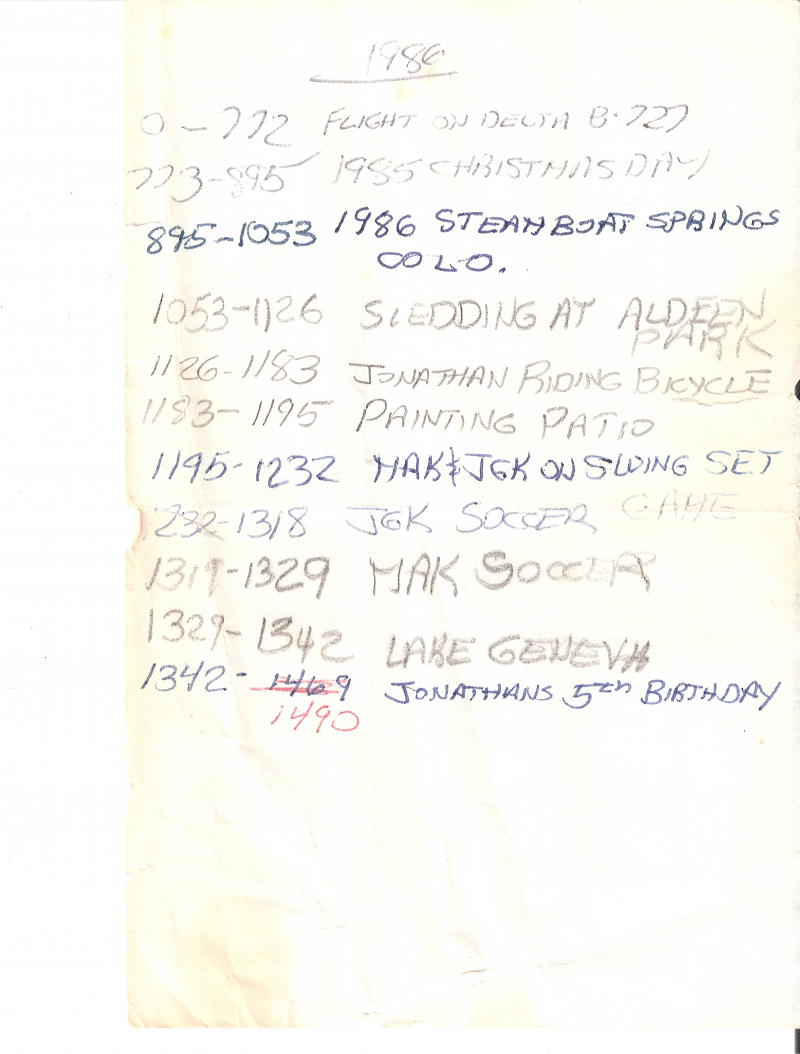 1986
0-772 FLIGHT ON DELTA B-727
773-895 1985 CHRISTMAS DAY
895-1053 1986 STEAMBOAT SPRINGS
COLO.
1053-1126 SLEDDING AT ALDEEN
PARK
1126-1183 JONATHAN RIDING BICYCLE
1183-1195 PAINTING PATIO
1195-1232 MAK & JGK ON SWING SET
232-1318 JGK SOCCER GAME
1319-1329 MAK SOCCER
1329-1342 LAKE GENEVA
1342-1469 JONATHANS 5TH BIRTHDAY
1490